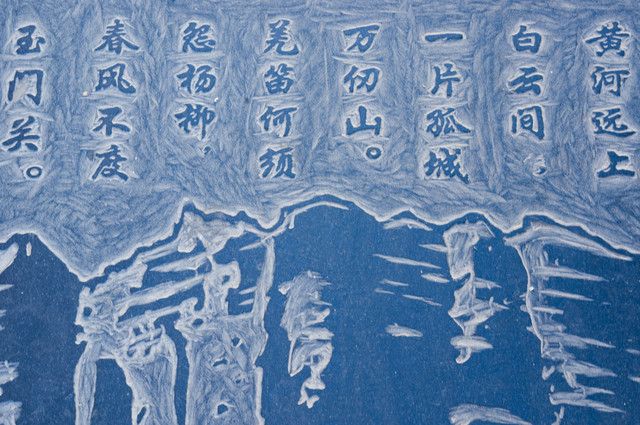 黄河远上
白云间，
一片孤城
万仞山。
羌笛何须
怨杨柳，
春风不度
玉门关。